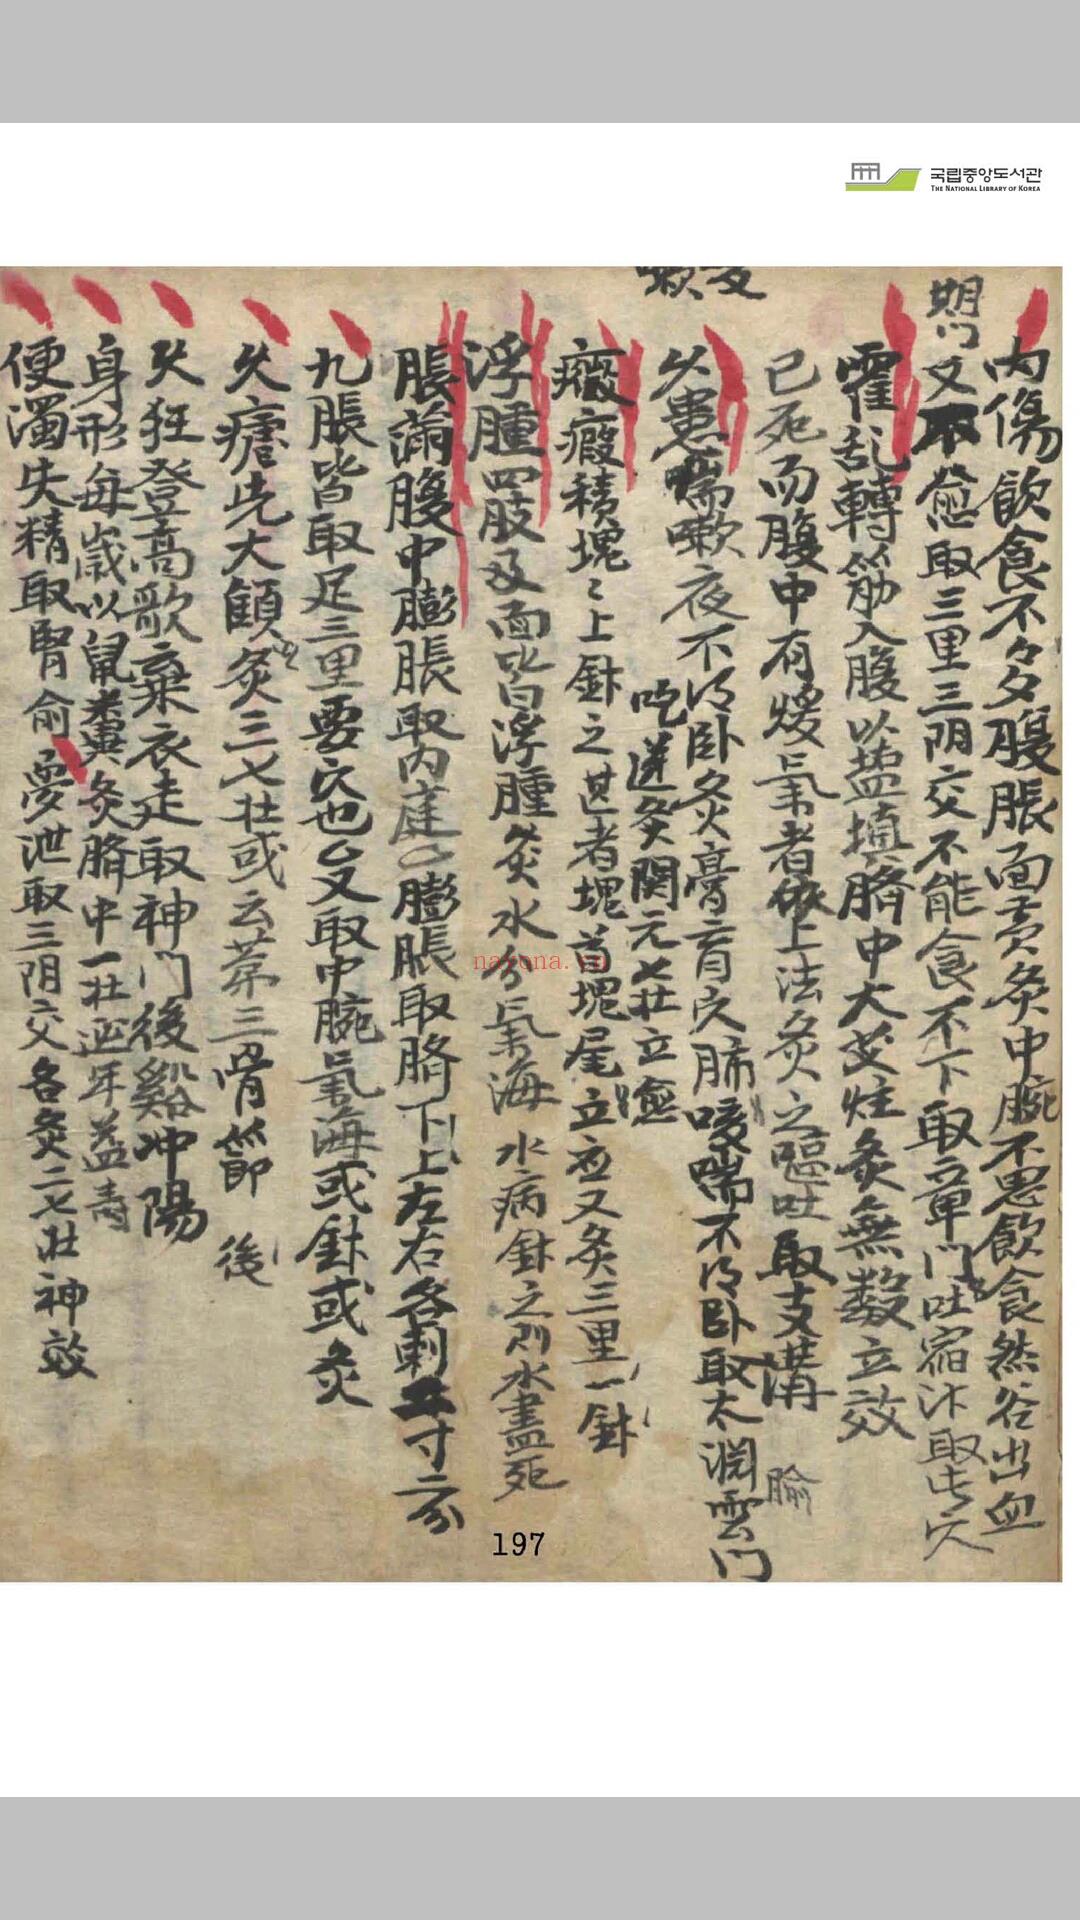 국립중앙도서관
THE NATIONAL LIBRARY OF KOREA
嗽
內傷飮食不多腹脹面黃灸中脘不思飮食然谷出血
期門
又不愈取三里三阴交不能食不下取章門吐宿汁取此穴
霍乱轉筋入腹以塩填臍中大艾炷灸無数立效
已死而腹中有煖氣者依上法灸之嘔吐取支溝
腧
久患喘嗽夜不得卧灸膏肓穴肺咳喘不得卧取太淵雲門
吃逆灸関元七壮立愈
癥瘕積塊〻上針之甚者塊首塊尾立应又灸三里一針
浮腫四肢及面皆浮腫灸水分氣海 水病針之则水盡死
脹滿腹中膨脹取內庭 膨脹取臍下上左右各刺二寸二分
九脹皆取足三里要穴也 又取中脘氣海或針或灸
久瘧先大顀灸三七壮或云第三骨節
後
久狂登高歌棄衣走取神門後谿冲陽
身形每歲以鼠糞灸臍中一壮延年益壽
便濁失精取腎俞 夢泄取三阴交各灸二七壮神效
nayona.cn
197